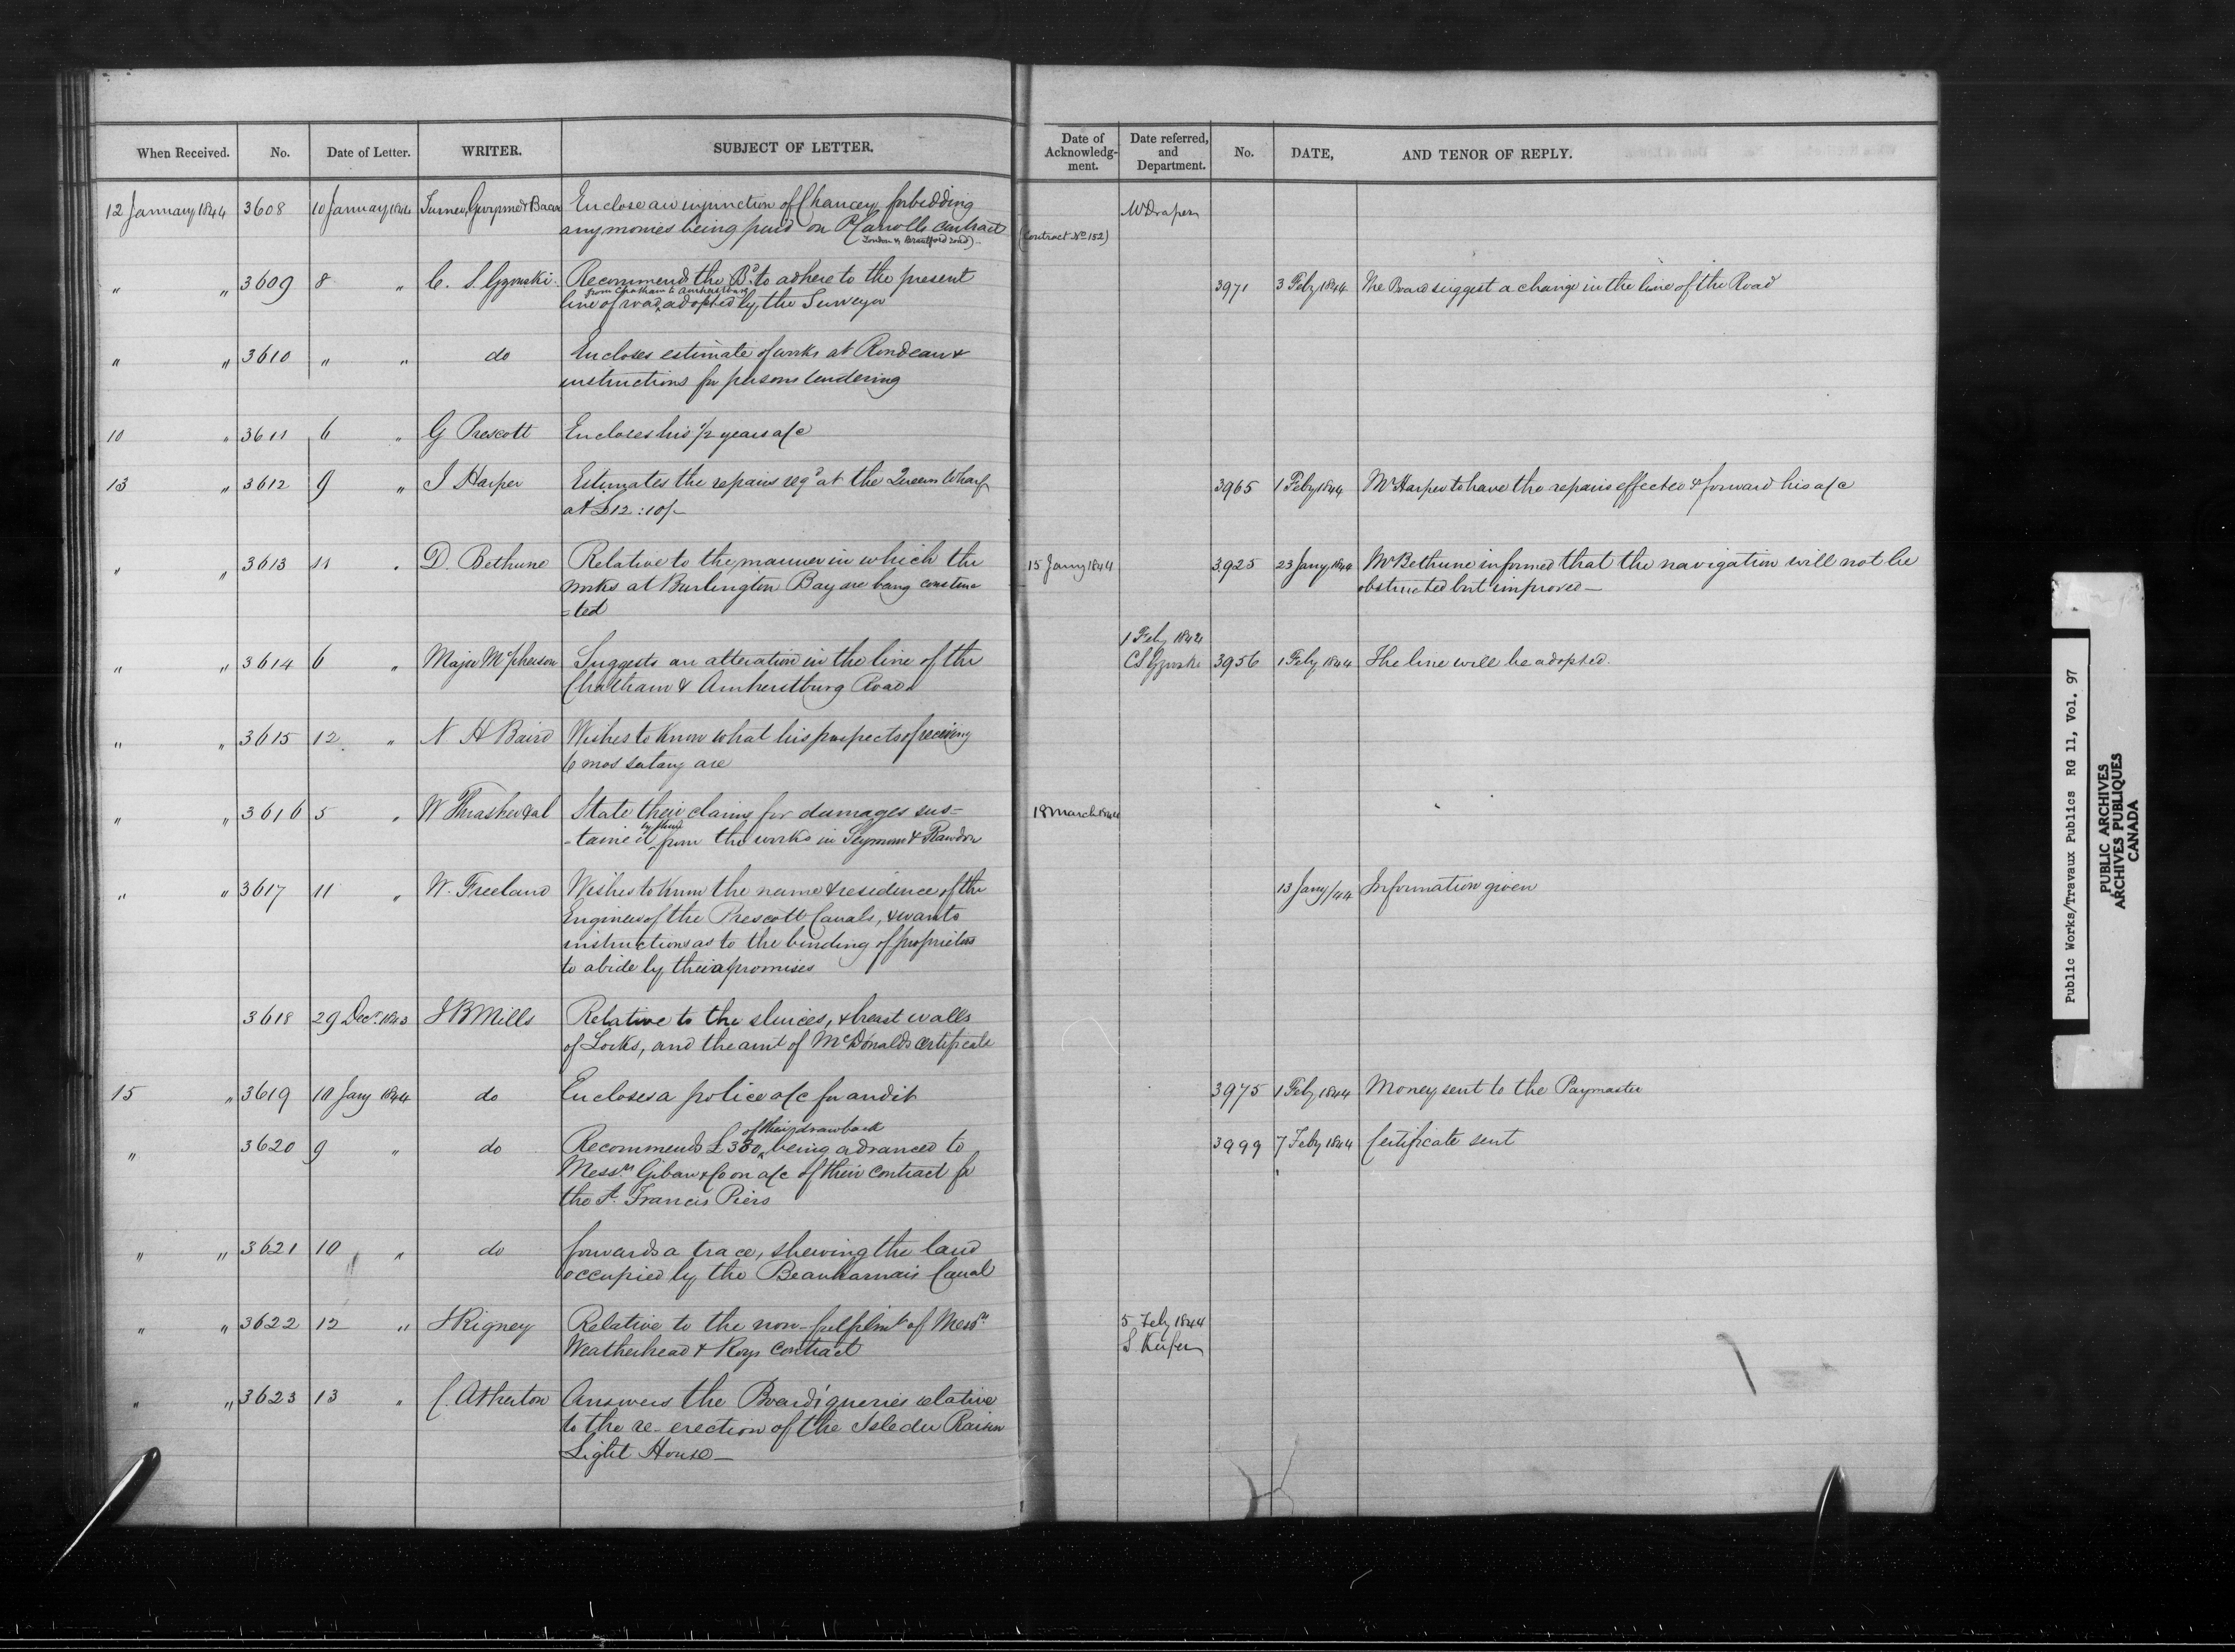 When Received. No. Date of Letter. WRITER. SUBJECT OF LETTER. Date of Acknowledg-ment. Date referred, and Department. No. DATE, AND TENOR OF REPLY.
12 January 1844 3608 10 January 1844 Turner, Gwynne & Bacon Enclose an injunction of Chancey forbidding Mr Draper
any monies being paid on P Carrolls contract (Contract No 152)
London & Brantford road)
" " 3609 8 " C. S. Gzowski Recommend the Bd. to adhere to the present 3971 3 Feby 1844 The Board suggest a change in the line of the Road
from Chatham to Amherstburg
line of road adopted by the Surveyor
" " 3610 " " do Encloses estimate of works at Rondeau &
instructions for persons tendering
10 " 3611 6 " G Prescott Encloses his 1/2 years a/c
13 " 3612 9 " J Harper Estimates the repairs reqd at the Queens Wharf 3965 1 Feby 1844 Mr Harper to have the repairs effected & forward his a/c
at £12:10/-
" " 3613 11 " D. Bethune Relative to the manner in which the 15 Jany 1844 3925 23 Jany 1844 Mr Bethune informed that the navigation will not be
works at Burlington Bay are being construc obstructed but improved—
=ted
1 Feby 1844
" " 3614 6 " Major McPherson Suggests an alteration in the line of the CS Gzowski 3956 1 Feby 1844 The line will be adopted.
Chatham & Amherstburg Road
" " 3615 12 " N H Baird Wishes to know what his prospects of receiving
6 mos salary are
" " 3616 5 " W Thrasher & al State their claims for damages sus- 18 March 1844
by them
-tained from the works in Seymour & Rawdon
" " 3617 11 " W. Freeland Wishes to know the name & residence of the 13 Jany/44 Information given
Engineer of the Prescott Canals, & wants
instructions as to the binding of proprietors
to abide by their promises
3618 29 Decr. 1843 J B Mills Relative to the sluices, & breast walls
of Locks, and the amt of McDonalds certificate
15 " 3619 10 Jany 1844 do Encloses a police a/c for audit 3975 1 Feby 1844 Money sent to the Paymaster
of their drawback
" 3620 9 " do Recommends £380 being advanced to 3999 7 Feby 1844 Certificate sent
Messrs Gibaw & Co on a/c of their contract for
the St. Francis Piers
" " 3621 10 " do forwards a trace, shewing the land
occupied by the Beauharnais Canal
" " 3622 12 " J Rigney Relative to the non-fulfilmt of Messrs 5 Feby 1844
Weatherhead & Roys contract S Keefer
" " 3623 13 " C. Atherton Answers the Board's queries relative
to the re-erection of the Isle du Raisin
Light House—
Public Works/Travaux Publics RG 11, Vol. 97
PUBLIC ARCHIVES
ARCHIVES PUBLIQUES
CANADA